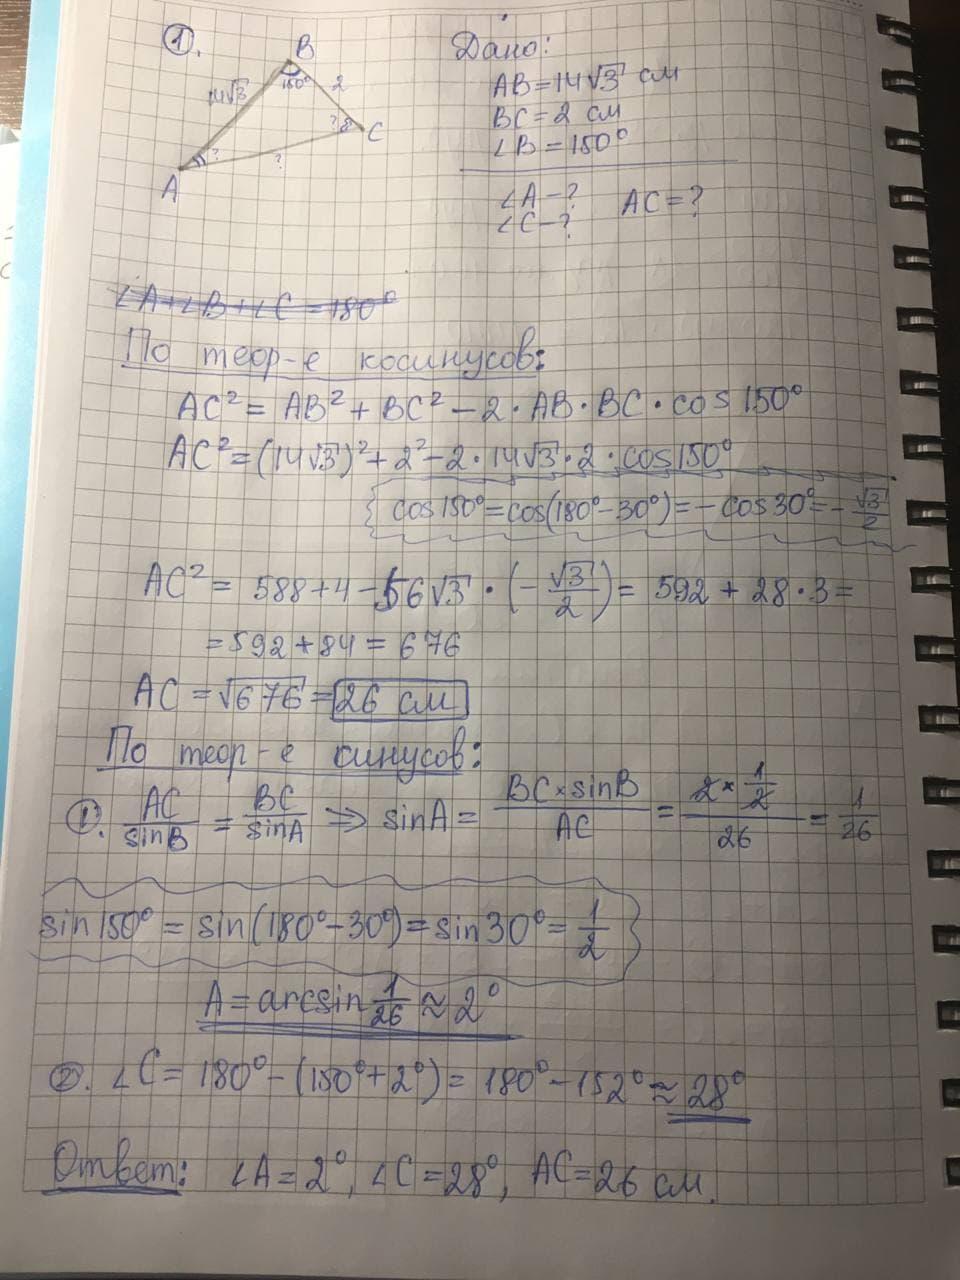 ①.
B
14√3
150°
2
? 
C
?
?
A
Дано:
AB=14√3 см
BC=2 см
∠B=150°
∠A-?
∠C-?
AC=?
∠A+∠B+∠C=180°
По теор-е косинусов:
AC²= AB²+BC²-2·AB·BC·cos150°
AC²=(14√3)²+2²-2·14√3·2·cos150°
cos150°=cos(180°-30°)=-cos30°=-√3/2
AC²= 588+4-56√3·(-√3/2)= 592+28·3=
=592+84=676
AC=√676=26 см
По теор-е синусов:
①. AC/sinB = BC/sinA ⇒ sinA= BC×sinB/AC = 2×1/2/26 = 1/26
sin150°=sin(180°-30°)=sin30°=1/2
A=arcsin 1/26 ≈ 2°
②. ∠C= 180°-(150°+2°)= 180°-152°≈28°
Ответ: ∠A=2°, ∠C=28°, AC=26 см.